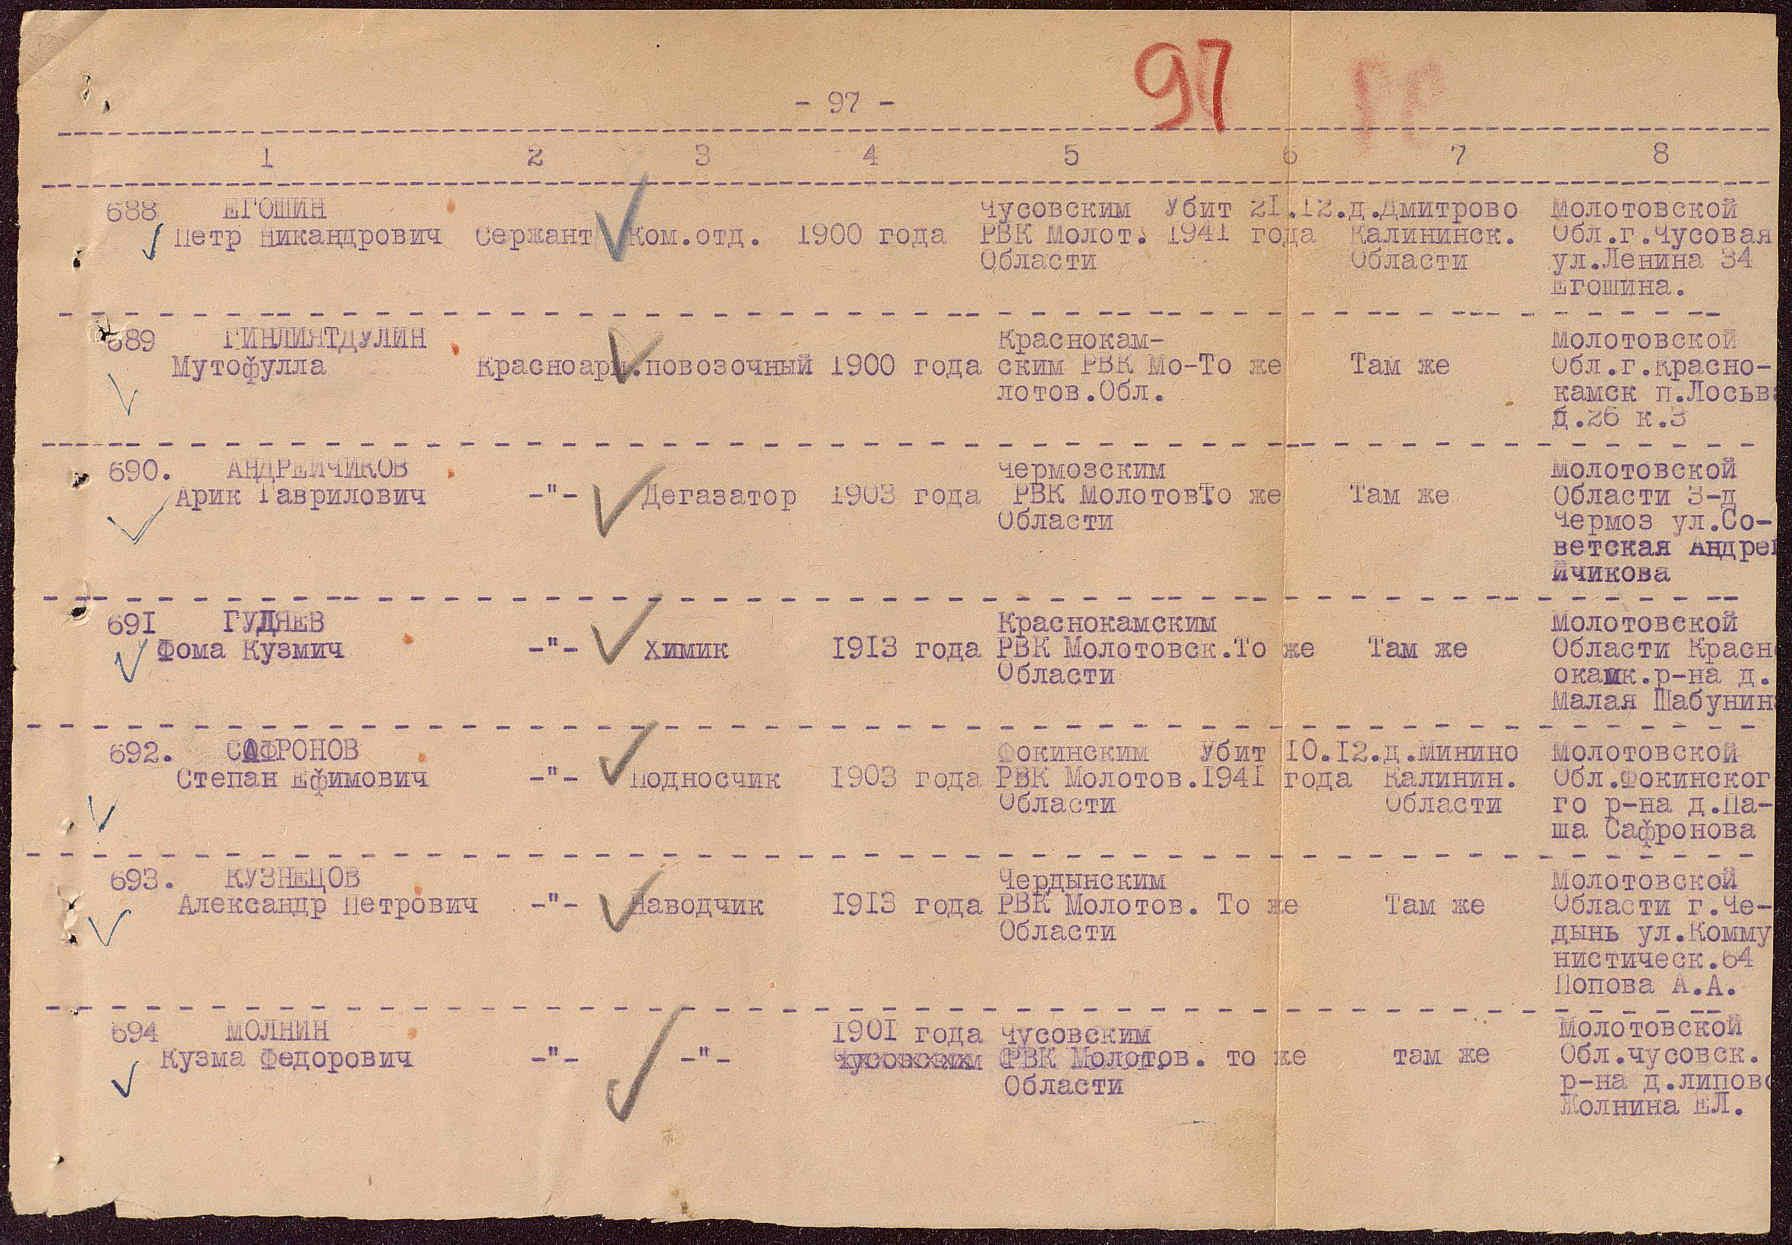 97
- 97 -
1 2 3 4 5 6 7 8
688 ЕГОШИН Чусовским Убит 21.12.д.Дмитрово Молотовской
Петр Никандрович Сержант Ком.отд. 1900 года РВК Молот. 1941 года Калининск. Обл.г.Чусовая
Области Области ул.Ленина 34
Егошина.
689 ГИНЛИЯТДУЛИН Краснокам- Молотовской
Мутофулла Красноарм.повозочный 1900 года ским РВК Мо-То же Там же Обл.г.Красно-
лотов.Обл. камск п.Лосьва
д.26 к.3
690. АНДРЕЙЧИКОВ Чермозским Молотовской
Арик Гаврилович -"- Дегазатор 1903 года РВК Молотов То же Там же Области З-д
Области Чермоз ул.Со-
ветская Андре
йчикова
691 ГУДЯЕВ Краснокамским Молотовской
Фома Кузмич -"- Химик 1913 года РВК Молотовск.То же Там же Области Красн
Области окамк.р-на д.
Малая Шабунин
692. САФРОНОВ Фокинским Убит 10.12.д.Минино Молотовской
Степан Ефимович -"- Подносчик 1903 года РВК Молотов.1941 года Калинин. Обл.Фокинског
Области Области го р-на д.Па-
ша Сафронова
693. КУЗНЕЦОВ Чердынским Молотовской
Александр Петрович -"- Наводчик 1913 года РВК Молотов. То же Там же Области г.Че-
Области дынь ул.Комму
нистическ.64
Попова А.А.
694 МОЛНИН 1901 года Чусовским Молотовской
Кузма Федорович -"- -"- Чусовским РВК Молотов. то же там же Обл.чусовск.
Области р-на д.липово
Молнина ЕЛ.